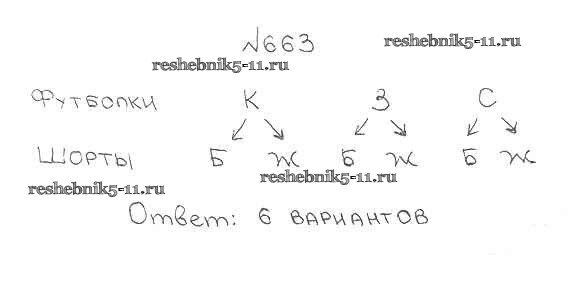 №663
reshebnik5-11.ru
reshebnik5-11.ru
Футболки К З С
Шорты Б Ж Б Ж Б Ж
reshebnik5-11.ru
reshebnik5-11.ru
Ответ: 6 вариантов